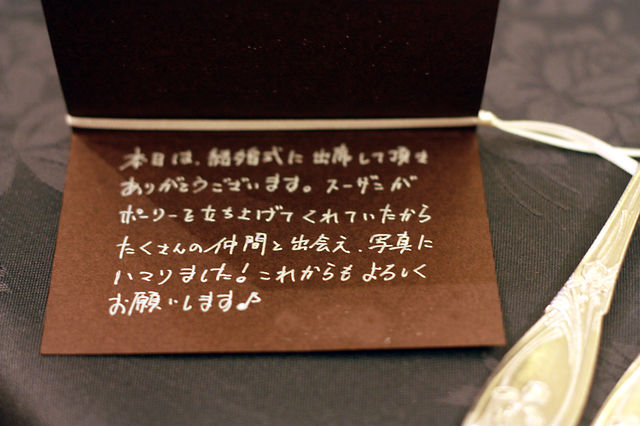 本日は、結婚式に出席して頂き
ありがとうございます。スーザンが
ポーリーを立ち上げてくれていたから
たくさんの仲間と出会え、写真に
ハマりました！これからもよろしく
お願いします♪